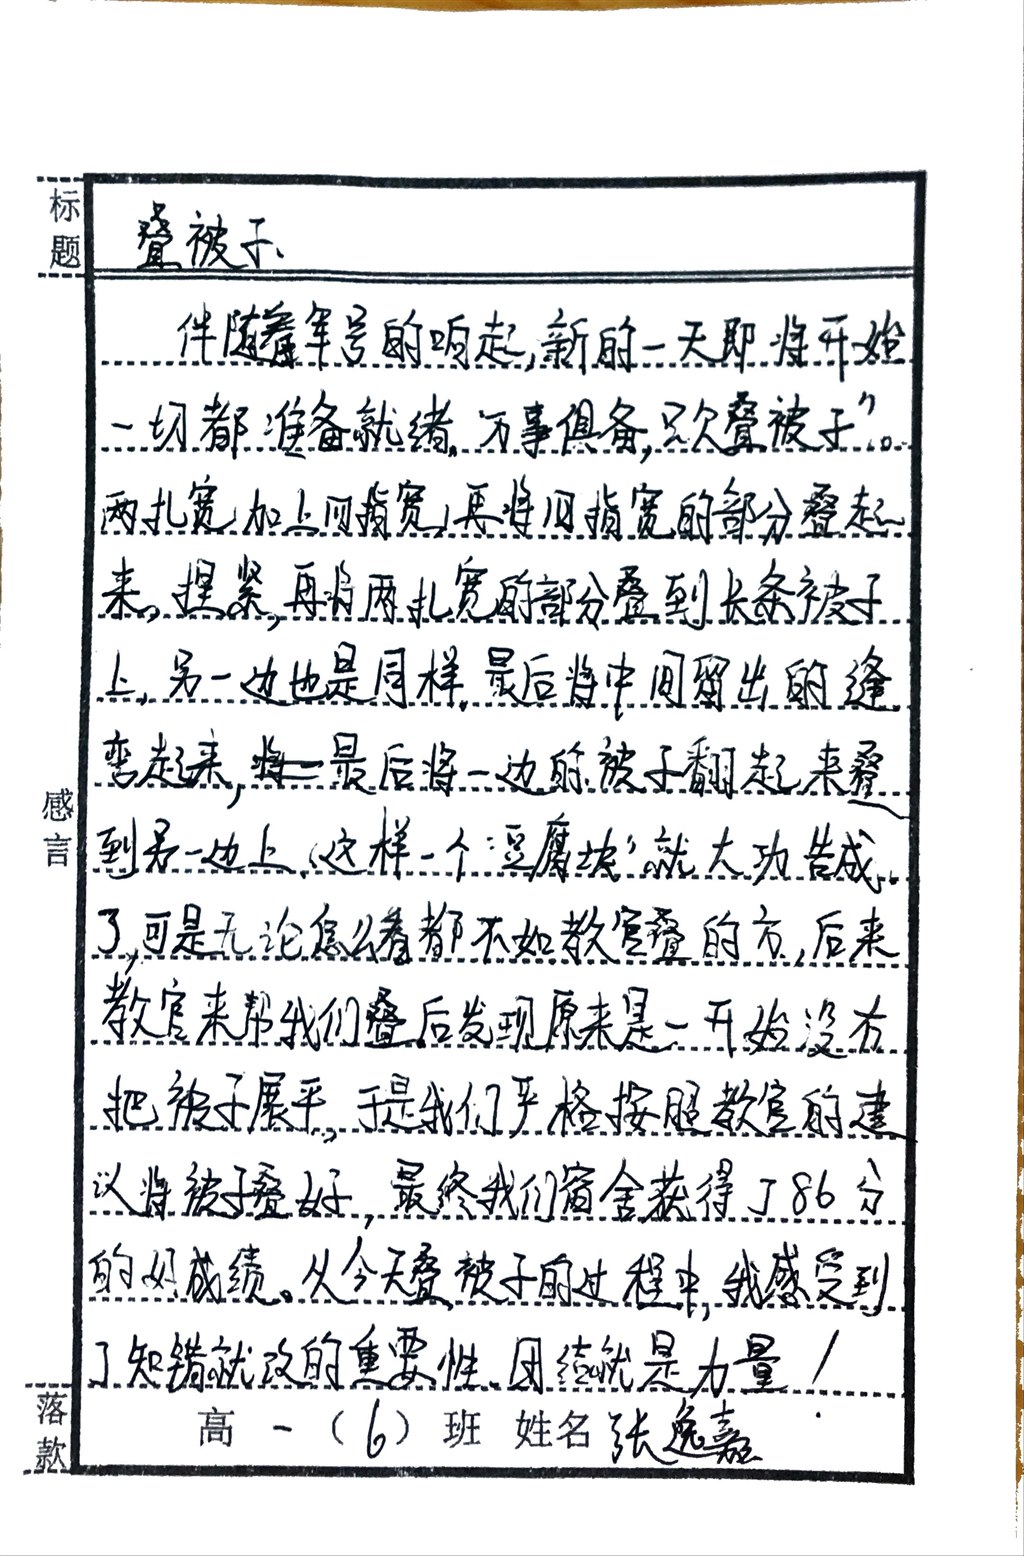 标题
叠被子
伴随着军号的响起,新的一天即将开始
一切都准备就绪。“万事俱备,只欠叠被子”。
两扎宽,加上四指宽,再将四指宽的部分叠起
来,捏紧,再将两扎宽的部分叠到长条被子
上,另一边也是同样,最后将中间留出的缝
弯起来,最后将一边的被子翻起来叠
到另一边上,这样一个“豆腐块”就大功告成
了,可是无论怎么看都不如教官叠的方,后来
教官来帮我们叠后发现原来是一开始没有
把被子展平,于是我们严格按照教官的建
议将被子叠好,最终我们宿舍获得了86分
的好成绩。从今天叠被子的过程中,我感受到
了知错就改的重要性,团结就是力量!
感言
落款
高一(6)班 姓名 张逸嘉